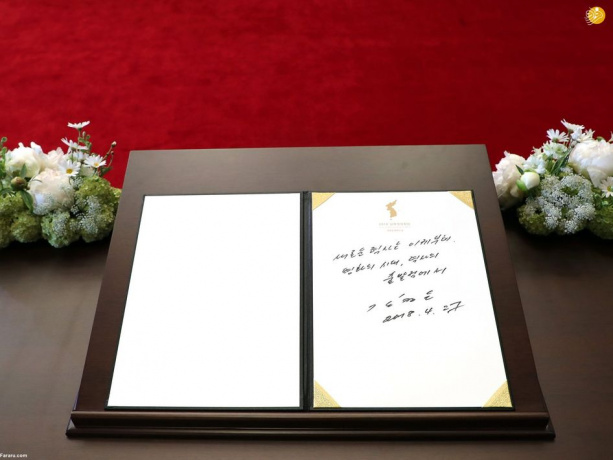 새로운 력사는 이제부터.
평화의 시대, 력사의
출발점에서
김정은
2018. 4. 27
Fararu.com